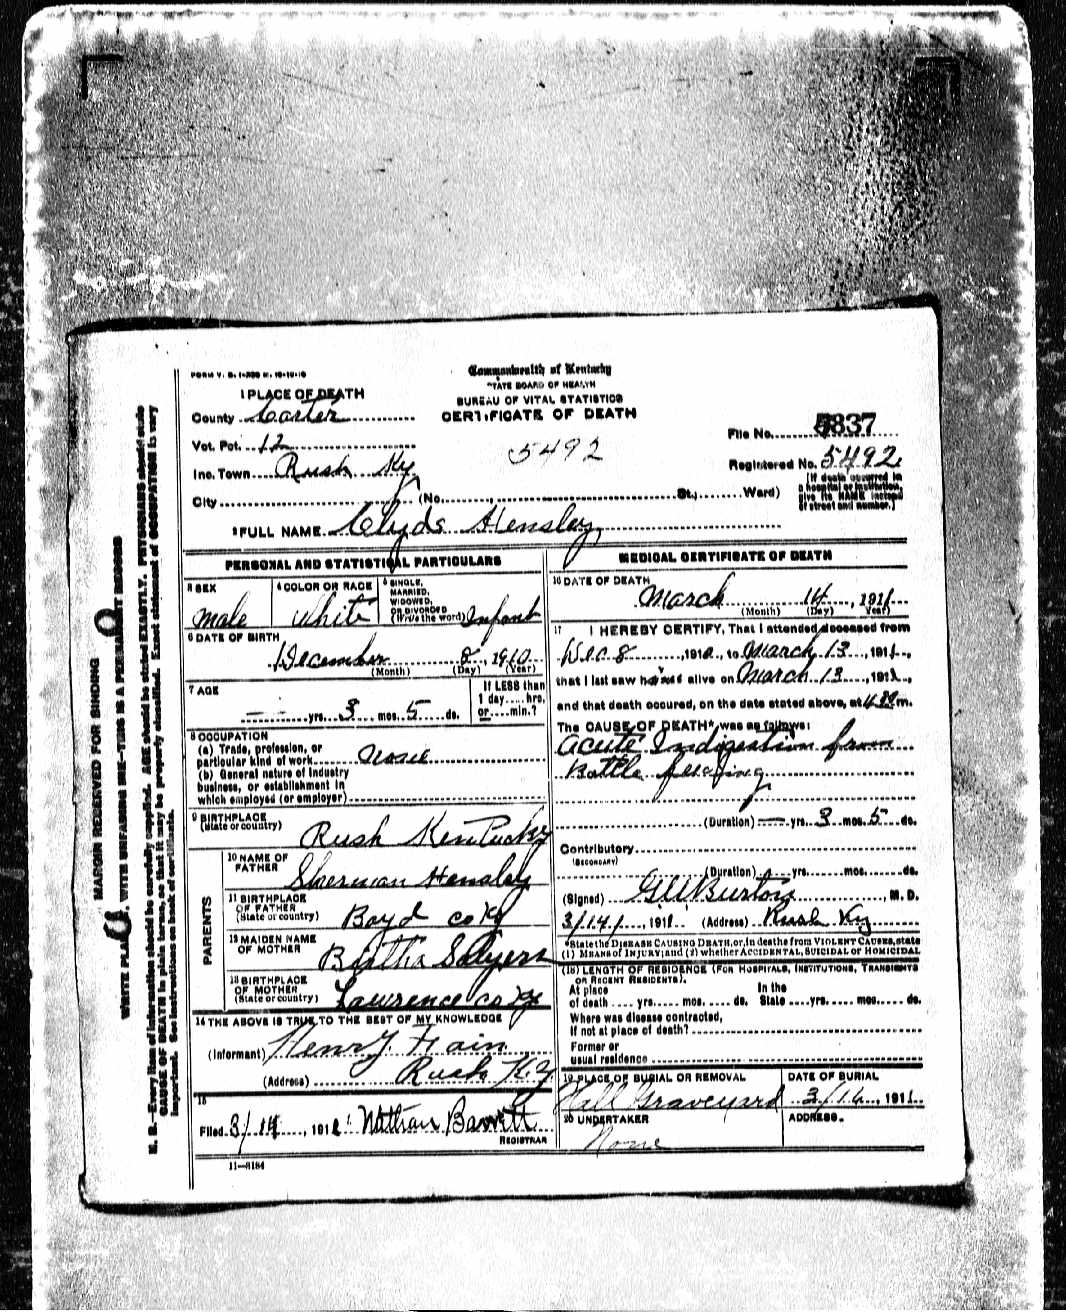 FORM V. S. 1-
Commonwealth of Kentucky
STATE BOARD OF HEALTH
BUREAU OF VITAL STATISTICS
CERTIFICATE OF DEATH
1 PLACE OF DEATH
County Carter
Vot. Pct. 12
Inc. Town Rush Ky
City (No. , St.; Ward)
5492
File No. 5837
Registered No. 5492
(If death occurred in
a hospital or institution,
give its NAME instead
of street and number.)
2 FULL NAME Clyde Hensley
PERSONAL AND STATISTICAL PARTICULARS
3 SEX
male
4 COLOR OR RACE
White
5 SINGLE,
MARRIED,
WIDOWED,
OR DIVORCED
(Write the word) Infant
6 DATE OF BIRTH
December 8, 1910
(Month) (Day) (Year)
7 AGE
yrs. 3 mos. 5 ds.
If LESS than
1 day ..... hrs.
or .... min.?
8 OCCUPATION
(a) Trade, profession, or
particular kind of work None
(b) General nature of industry
business, or establishment in
which employed (or employer)
9 BIRTHPLACE
(State or country)
Rush Kentucky
PARENTS
10 NAME OF
FATHER
Sherman Hensley
11 BIRTHPLACE
OF FATHER
(State or country)
Boyd co Ky
12 MAIDEN NAME
OF MOTHER
Bertha Salyers
13 BIRTHPLACE
OF MOTHER
(State or country)
Lawrence co Ky
14 THE ABOVE IS TRUE TO THE BEST OF MY KNOWLEDGE
(Informant) Henry
(Address) Rush Ky
15
Filed 3/14, 191 Nathan Barrett
REGISTRAR
11—5184
MEDICAL CERTIFICATE OF DEATH
16 DATE OF DEATH
March 14, 1911
(Month) (Day) (Year)
17 I HEREBY CERTIFY, That I attended deceased from
Dec 8, 1910, to March 13, 1911,
that I last saw h alive on March 13, 1911,
and that death occured, on the date stated above, at m.
The CAUSE OF DEATH* was as follows:
Acute Indigestion from
Bottle feeding
(Duration) yrs. 3 mos. 5 ds.
Contributory
(SECONDARY)
(Duration) yrs. mos. ds.
(Signed) Burton, M. D.
3/14/, 1911. (Address) Rush Ky
*State the DISEASE CAUSING DEATH, or, in deaths from VIOLENT CAUSES, state
(1) MEANS of INJURY; and (2) whether ACCIDENTAL, SUICIDAL or HOMICIDAL
(18) LENGTH OF RESIDENCE (FOR HOSPITALS, INSTITUTIONS, TRANSIENTS
OR RECENT RESIDENTS).
At place In the
of death .... yrs. mos. ds. State yrs. mos. ds.
Where was disease contracted,
if not at place of death?
Former or
usual residence
19 PLACE OF BURIAL OR REMOVAL
Hall Graveyard
DATE OF BURIAL
, 1911
20 UNDERTAKER
None
ADDRESS
MARGIN RESERVED FOR BINDING
WRITE PLAINLY, WITH UNFADING INK—THIS IS A PERMANENT RECORD
N. B.—Every item of information should be carefully supplied. AGE should be stated EXACTLY. PHYSICIANS should state
CAUSE OF DEATH in plain terms, so that it may be properly classified. Exact statement of OCCUPATION is very
important. See instructions on back of certificate.